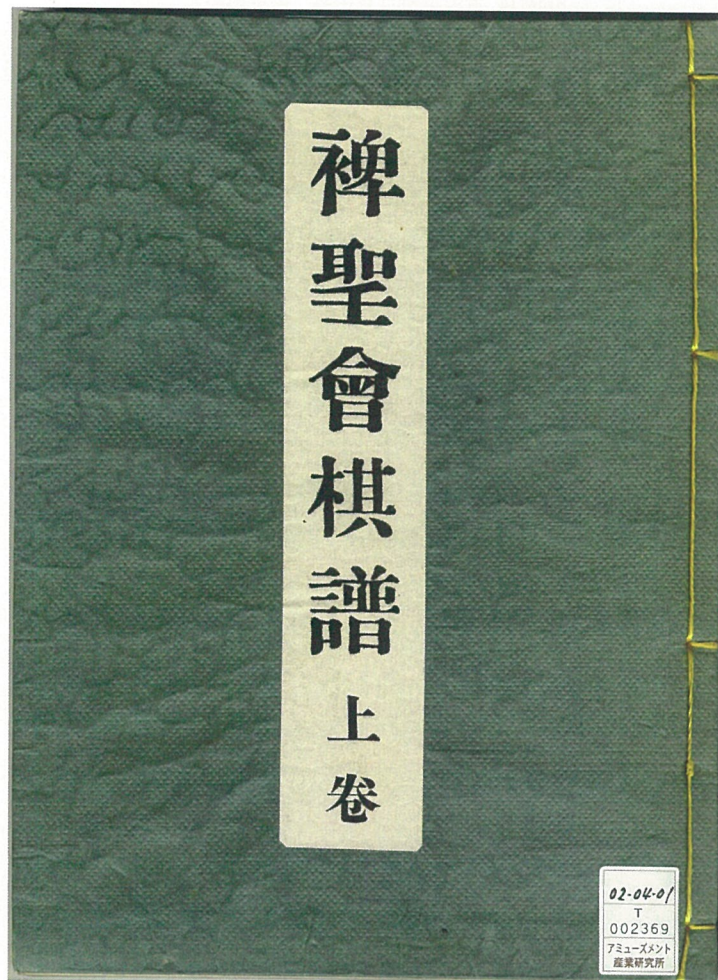 裨聖會棋譜 上卷
02-04-01
T
002369
アミューズメント
産業研究所